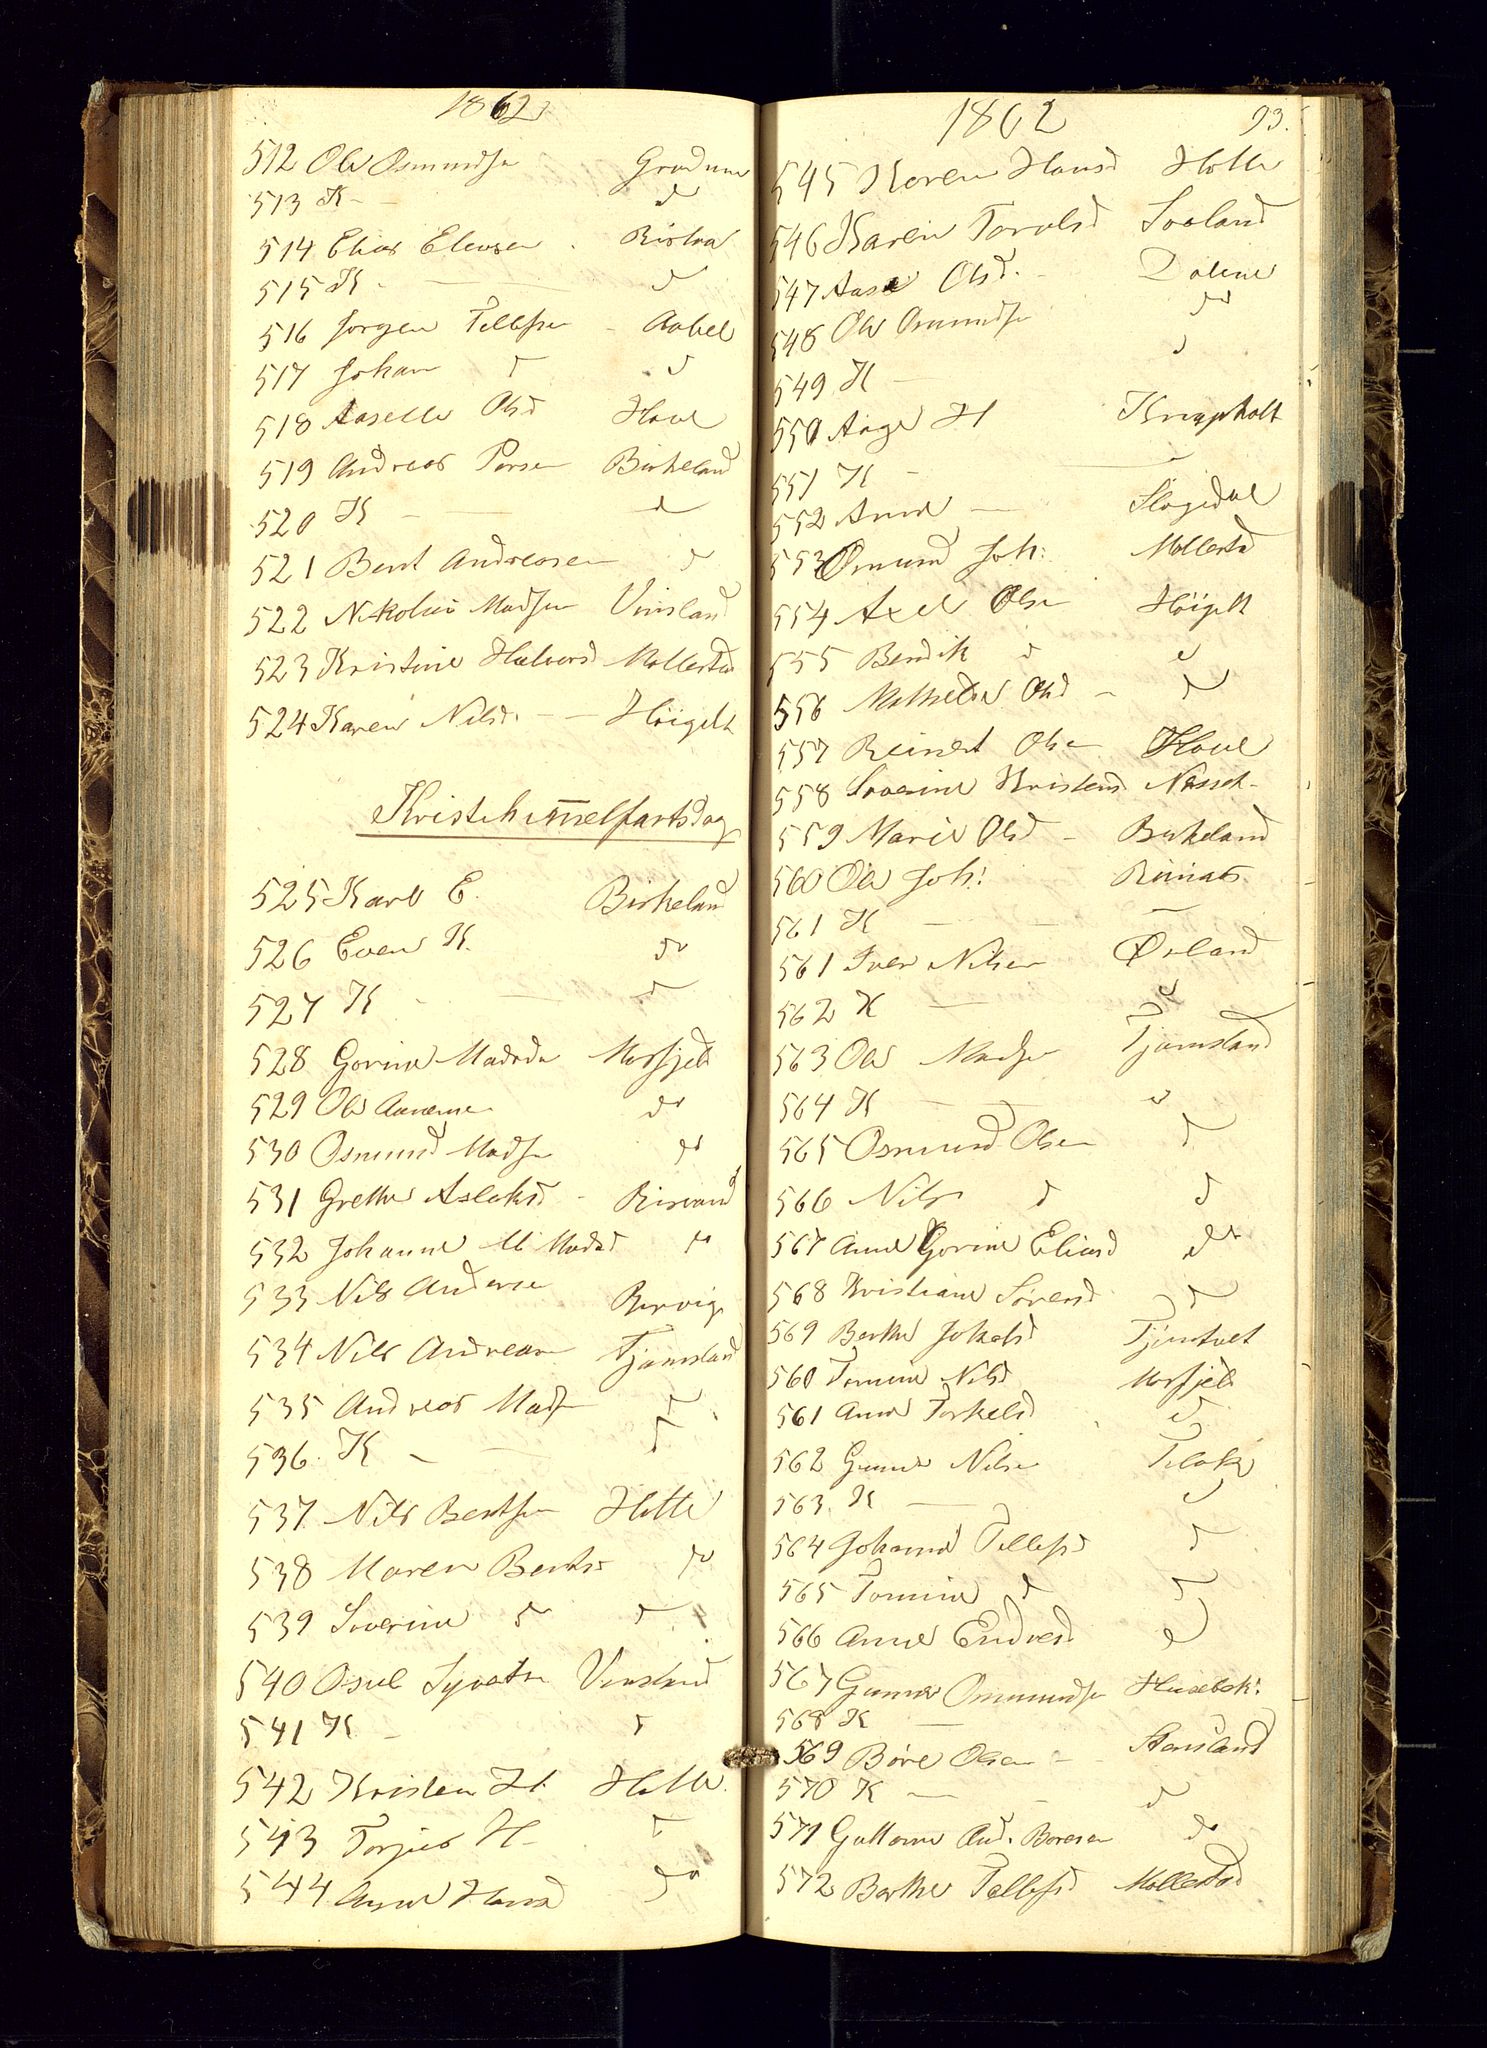 1862
512 Ole Osmundsen Gradum
513 K - d
514 Elias Eleusen - Risloa
515 K - d
516 Jorgen Tellefsen - Aabel
517 Johan d d
518 Aaselle Olsd Hove
519 Andreas Persen Birkeland
520 K - d
521 Bent Andreasen d
522 Nikolai Madsen Vinsland
523 Kristine Halvorsd Mollestad
524 Karen Nilsd - - Höigilt
Kristihimelfartsdag
525 Karl E. Birkeland
526 Even K. do
527 K - d
528 Gorine Madsda Mosfjeld
529 Ole Aanense do
530 Osmund Madsen do
531 Grethe Aslaksd - Risvand
532 Johanne M Madsd do
533 Nils Anderse Rervig
534 Nils Andreasen Tjomsland
535 Andreas Madsen d
536. K - d
537 Nils Bentsen Hotte
538 Maren Bentsd do
539 Severine do d
540 Osul Syvertsn Vinsland
541 K - d
542 Kristen H. Hotte
543 Torjus H - d
544 Anne Hansd do
1862 93.
545 Karen Hansd Hotte
546 Karen Torvalsd Sooland
547 Aase Olsd. - Dolene
548 Ole Osmundsen do
549 K - d
550 Aage H Knapholt
551 K -
552 Anne - Slogedal
553 Osmund Joh: Mollestad
554 Axel Olsen Höigilt
555 Bendik d d
556 Mathilde Olsd - d
557 Reinert Olsen Hove
558 Severine Kristensd Nesset-
559 Marie Olsd - Birkeland
560 Ole Joh: Rünats
561 K -
561 Iver Nilsen Övland
562 K - d
563 Ole Madsen Tjomsland
564 K - d
565 Osmund Olsen d
566 Nils d d
567 Anne Gorine Eliasd do
568 Kristiane Sörensd d
569 Berthe Jakobsd Tjomtvet
560 Tomine Nilsd Mosfjeld
561 Anne Torkelsd d
562 Gunne Nilsen
563. K - d
564 Johanne Tellefsd d
565 Tomine d d
566 Anne Endresd d
567 Gunner Ommundsen Husebak:
568 K -
569 Böre Olsen - Stensland
570 K - d
571 Guttorm And. Boresen do
572 Berthe Tellefsd Mollestad